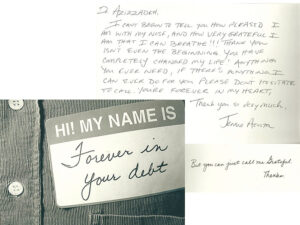 I CAN'T BEGIN TO TELL YOU HOW PLEASED I
AM WITH MY NOSE, AND HOW VERY GRATEFUL I
AM THAT I CAN BREATHE!!! THANK YOU
ISN'T EVEN THE BEGINNING. YOU HAVE
COMPLETELY CHANGED MY LIFE! ANYTHING
YOU EVER NEED, IF THERE'S ANYTHING I
CAN EVER DO FOR YOU PLEASE DON'T HESITATE
TO CALL. YOU'RE FOREVER IN MY HEART,
Thank you so very much,
HI! MY NAME IS
Forever in
your debt
But you can just call me Grateful.
Thanks.